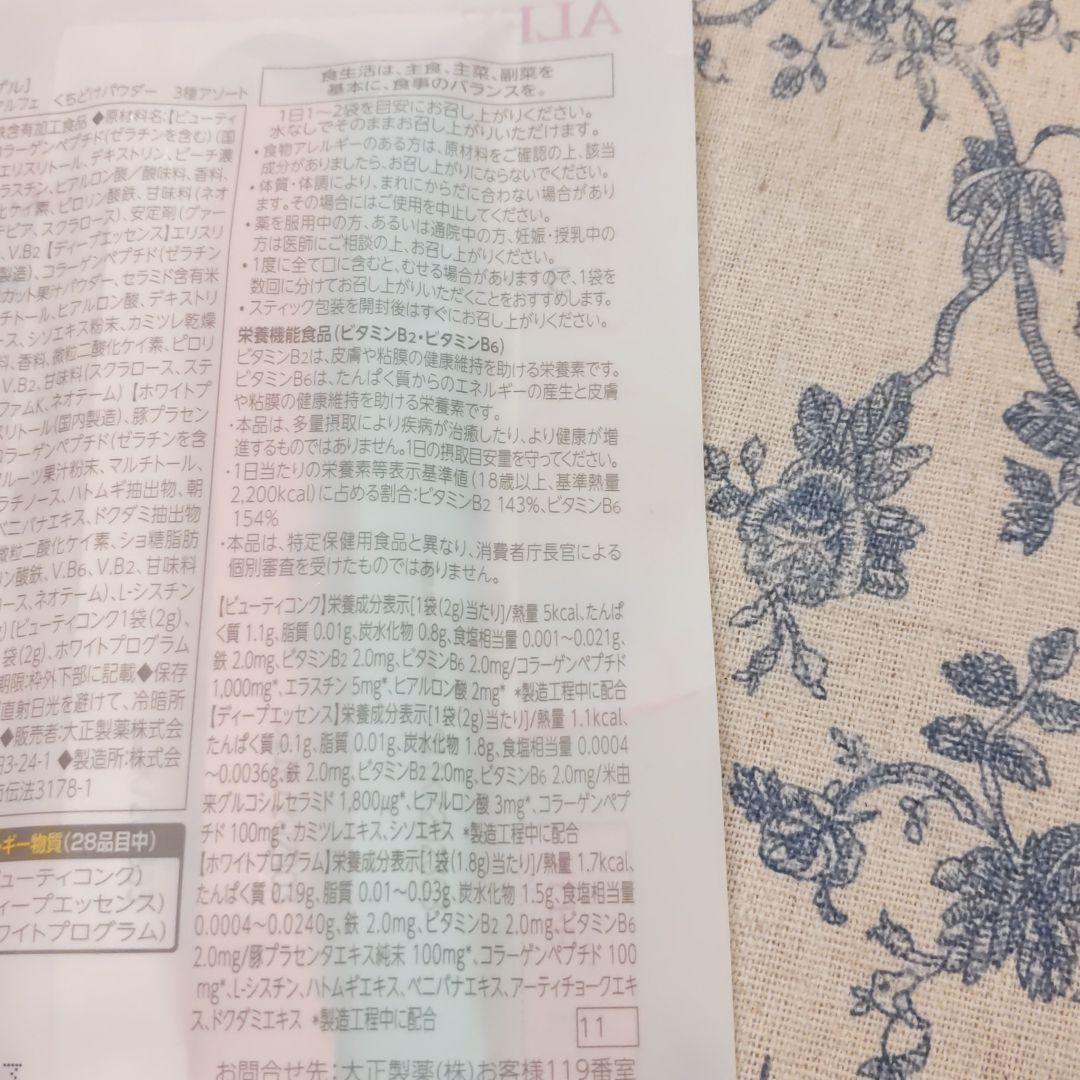 ALF
ゲル]
アルフェ くちどけパウダー 3種アソート
鉄含有加工食品 ◆原材料名:【ビューティ
コラーゲンペプチド(ゼラチンを含む)(国
エリスリトール、デキストリン、ピーチ濃
ラスチン、ヒアルロン酸/酸味料、香料、
化ケイ素、ピロリン酸鉄、甘味料(ネオ
テビア、スクラロース)、安定剤(グァー
、V.B2【ディープエッセンス】エリスリ
製造)、コラーゲンペプチド(ゼラチン
カット果汁パウダー、セラミド含有米
チトール、ヒアルロン酸、デキストリ
ース、シソエキス粉末、カミツレ乾燥
料、香料、微粒二酸化ケイ素、ピロリ
V.B2、甘味料(スクラロース、ステ
ファムK、ネオテーム)【ホワイトプ
スリトール(国内製造)、豚プラセン
コラーゲンペプチド(ゼラチンを含
フルーツ果汁粉末、マルチトール、
ラチノース、ハトムギ抽出物、朝
ベニバナエキス、ドクダミ抽出物
微粒二酸化ケイ素、ショ糖脂肪
リン酸鉄、V.B6、V.B2、甘味料
ロース、ネオテーム)、L-シスチン
)[ビューティコンク1袋(2g)、
袋(2g)、ホワイトプログラム
期限:枠外下部に記載◆保存
直射日光を避けて、冷暗所
◆販売者:大正製薬株式会
3-24-1 ◆製造所:株式会
伝法3178-1
ギー物質(28品目中)
ビューティコンク)
ィープエッセンス)
ワイトプログラム)
食生活は、主食、主菜、副菜を
基本に、食事のバランスを。
1日1～2袋を目安にお召し上がりください。
水なしでそのままお召し上がりいただけます。
・食物アレルギーのある方は、原材料をご確認の上、該当
成分がありましたら、お召し上がりにならないでください。
・体質・体調により、まれにからだに合わない場合があり
ます。その場合にはご使用を中止してください。
・薬を服用中の方、あるいは通院中の方、妊娠・授乳中の
方は医師にご相談の上、お召し上がりください。
・1度に全て口に含むと、むせる場合がありますので、1袋を
数回に分けてお召し上がりいただくことをおすすめします。
・スティック包装を開封後はすぐにお召し上がりください。
栄養機能食品(ビタミンB2・ビタミンB6)
ビタミンB2は、皮膚や粘膜の健康維持を助ける栄養素です。
ビタミンB6は、たんぱく質からのエネルギーの産生と皮膚
や粘膜の健康維持を助ける栄養素です。
・本品は、多量摂取により疾病が治癒したり、より健康が増
進するものではありません。1日の摂取目安量を守ってください。
・1日当たりの栄養素等表示基準値(18歳以上、基準熱量
2,200kcal)に占める割合:ビタミンB2 143%、ビタミンB6
154%
・本品は、特定保健用食品と異なり、消費者庁長官による
個別審査を受けたものではありません。
【ビューティコンク】栄養成分表示[1袋(2g)当たり]/熱量 5kcal、たんぱ
く質 1.1g、脂質 0.01g、炭水化物 0.8g、食塩相当量 0.001～0.021g、
鉄 2.0mg、ビタミンB2 2.0mg、ビタミンB6 2.0mg/コラーゲンペプチド
1,000mg*、エラスチン 5mg*、ヒアルロン酸 2mg* *製造工程中に配合
【ディープエッセンス】栄養成分表示[1袋(2g)当たり]/熱量 1.1kcal、
たんぱく質 0.1g、脂質 0.01g、炭水化物 1.8g、食塩相当量 0.0004
～0.0036g、鉄 2.0mg、ビタミンB2 2.0mg、ビタミンB6 2.0mg/米由
来グルコシルセラミド 1,800μg*、ヒアルロン酸 3mg*、コラーゲンペプ
チド 100mg*、カミツレエキス、シソエキス *製造工程中に配合
【ホワイトプログラム】栄養成分表示[1袋(1.8g)当たり]/熱量 1.7kcal、
たんぱく質 0.19g、脂質 0.01～0.03g、炭水化物 1.5g、食塩相当量
0.0004～0.0240g、鉄 2.0mg、ビタミンB2 2.0mg、ビタミンB6
2.0mg/豚プラセンタエキス純末 100mg*、コラーゲンペプチド 100
mg*、L-シスチン、ハトムギエキス、ベニバナエキス、アーティチョークエキ
ス、ドクダミエキス *製造工程中に配合
11
お問合せ先:大正製薬(株)お客様119番室